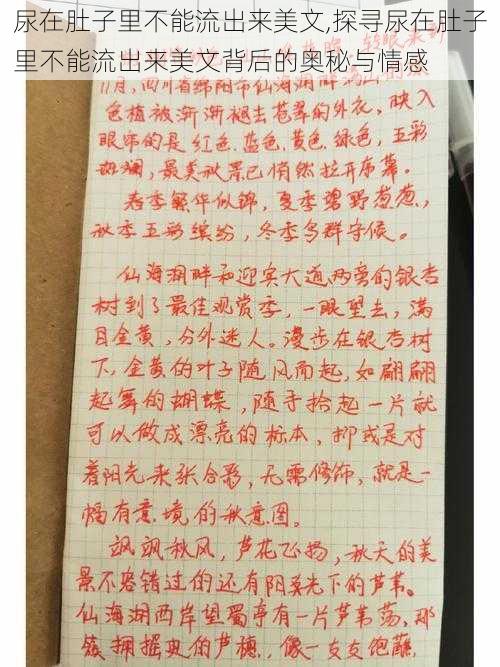 尿在肚子里不能流出来美文,探寻尿在肚子
里不能流出来美文背后的奥秘与情感
11月,四川省绵阳市仙海湖畔
色植被渐渐褪去苍翠的外衣，映入
眼帘的是红色.蓝色.黄色.绿色，五彩
斑斓，最美秋景已悄然拉开帘幕。
春季繁华似锦，夏季碧野葱葱，
秋季五彩缤纷，冬季鸟群守候。
仙海湖畔和迎宾大道两旁的银杏
树到了最佳观赏季，一眼望去，满
目金黄，分外迷人。漫步在银杏树
下，金黄的叶子随风而起，如翩翩
起舞的蝴蝶，随手拾起一片就
可以做成漂亮的标本，抑或是对
着阳光来张合影，无需修饰，就是一
幅有意境的秋意图。
飒飒秋风，芦花飞扬，秋天的美
景不容错过的还有阳光下的芦苇。
仙海湖西岸望蜀亭有一片芦苇荡，那
簇拥摇曳的芦穗，像一支支饱蘸